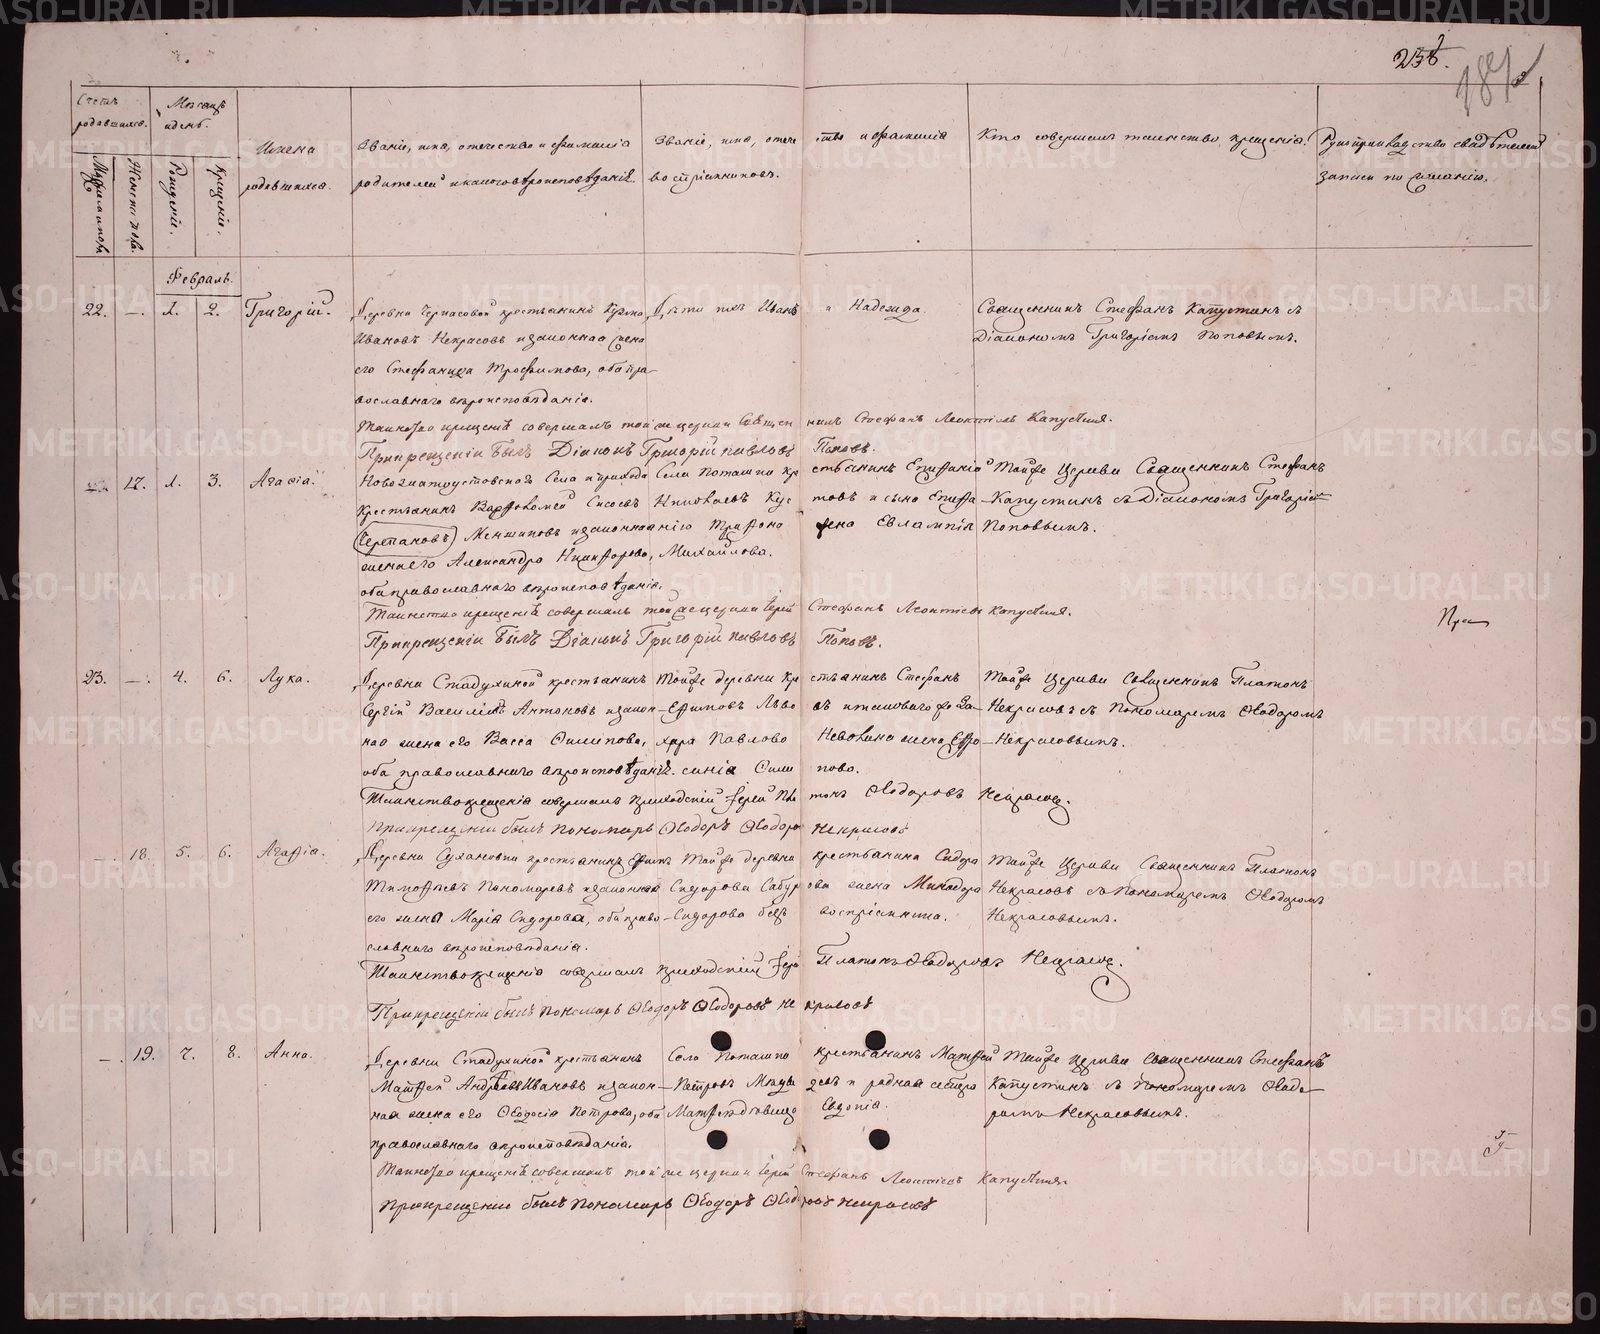 235.
Счетъ родившихся.
Мѣсяцъ и день.
Имена родившихся.
Званіе, имя, отечество и фамилія
родителей и какого вѣроисповѣданія.
Званіе, имя, отечество и фамилія
воспріемниковъ.
Кто совершалъ таинство крещенія.
Рукоприкладство свидѣтелей
записи по желанію.
Мужеска пола
Женска пола.
Рожденіе.
Крещеніе.
Февраль.
22. —. 1. 2. Григорій.
Деревни крестьянинъ
Ивановъ Некрасовъ и законная жена
его Стефанида Трофимова, оба пра-
вославнаго вѣроисповѣданія.
Дѣти ихъ Иванъ и Надежда.
Священникъ Стефанъ Капустинъ съ
Діакономъ Григоріемъ Поповымъ.
Таинство крещенія совершалъ той же церкви Священникъ Стефанъ Леонтіевъ Капустинъ.
При крещеніи былъ Діаконъ Григорій Павловъ Поповъ.
17. 1. 3. Агафія.
Новозлатоустовскаго Села и прихода
крестьянинъ Варфоломей Сисоевъ
(Черепановъ) Меншиковъ и законная
жена его Александра Никифорова,
оба православнаго вѣроисповѣданія.
Села Поташки крестьянинъ Епифаній
Николаевъ и сына Епифа-
нія Трифона жена Евлампія
Михайлова.
Тойже Церкви Священникъ Стефанъ
Капустинъ съ Діакономъ Григоріемъ
Поповымъ.
Таинство крещенія совершалъ той же церкви Іерей Стефанъ Леонтіевъ Капустинъ.
При крещеніи былъ Діаконъ Григорій Павловъ Поповъ.
23. —. 4. 6. Лука.
Деревни Стадухиной крестьянинъ
Сергій Василіевъ Антоновъ и закон-
ная жена его Васса Филипова,
оба православнаго вѣроисповѣданія.
Тойже деревни крестьянинъ Стефанъ
Ефимовъ
Павлова жена Ефро-
синія Филипова.
Тойже Церкви Священникъ Платонъ
Некрасовъ съ Пономаремъ Ѳеодоромъ
Некрасовымъ.
Таинство крещенія совершалъ приходскій Іерей Платонъ Ѳеодоровъ Некрасовъ.
При крещеніи былъ Пономарь Ѳеодоръ Ѳеодоровъ Некрасовъ
—. 18. 5. 6. Агафія.
Деревни Сухановки крестьянинъ
Тимофѣевъ Пономаревъ и законная
его жена Марія Сидорова, оба право-
славнаго вѣроисповѣданія.
Тойже деревни крестьянина Сидора
Сидорова жена Минадора
Сидорова безъ воспріемника.
Тойже Церкви Священникъ Платонъ
Некрасовъ съ Пономаремъ Ѳеодоромъ
Некрасовымъ.
Таинство крещенія совершалъ приходскій Іерей Платонъ Ѳеодоровъ Некрасовъ.
При крещеніи былъ Пономарь Ѳеодоръ Ѳеодоровъ Некрасовъ
—. 19. 7. 8. Анна.
Деревни Стадухиной крестьянинъ
Матфей Андреевъ Ивановъ и закон-
ная жена его Ѳеодосія Петрова, оба
православнаго вѣроисповѣданія.
Села Поташки крестьянинъ Матфей
Петровъ и родная сестра
Евдокія.
Тойже Церкви Священникъ Стефанъ
Капустинъ съ Пономаремъ Ѳеодо-
ромъ Некрасовымъ.
Таинство крещенія совершалъ той же церкви Іерей Стефанъ Леонтіевъ Капустинъ
При крещеніи былъ Пономарь Ѳеодоръ Ѳеодоровъ Некрасовъ
METRIKI.GASO-URAL.RU